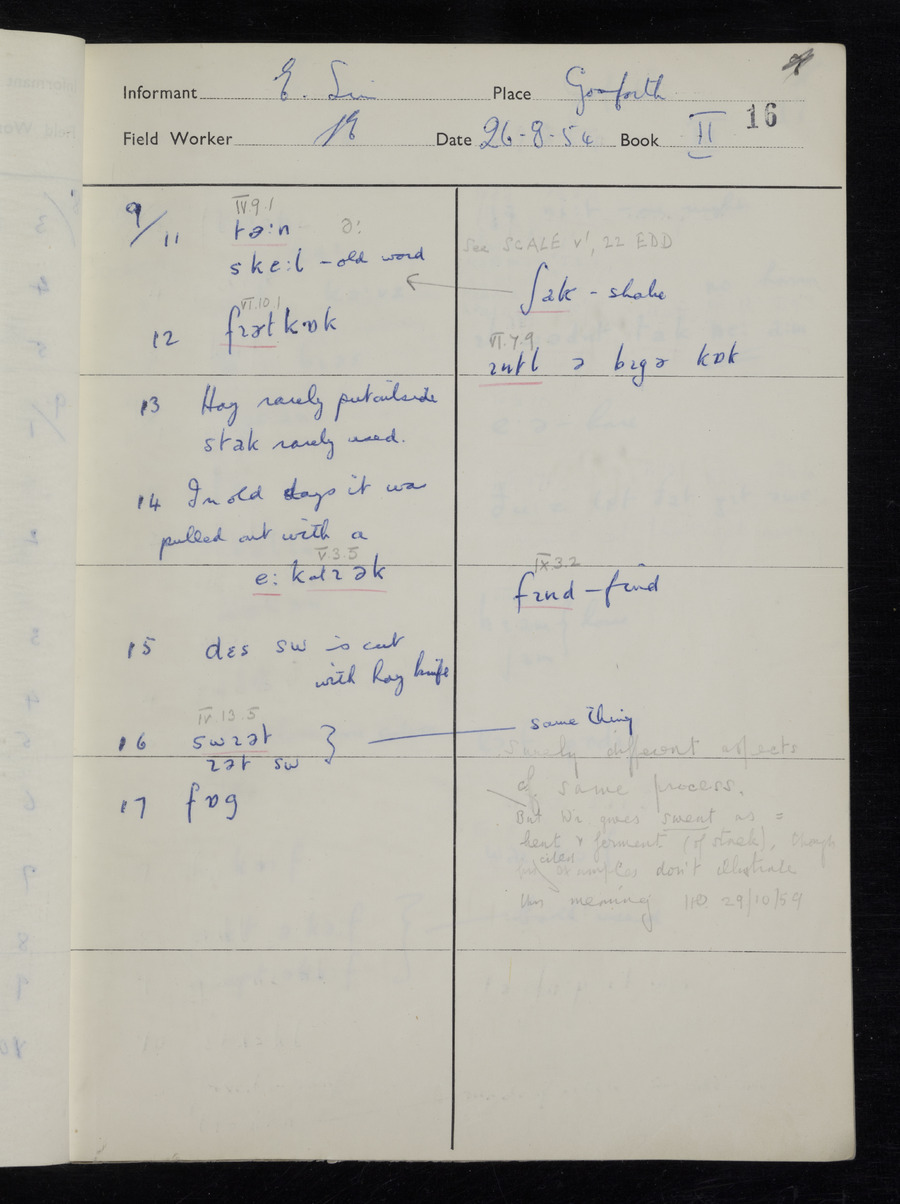 Informant E. Place Gosforth
Field Worker Date 26-8-54 Book II 16
9/11 IV.9.1
tə:n ə:
skɛ:l - old word
See SCALE v', 22 EDD
ʃak - shake
12 VI.10.1
fɹətkɒk
VI.7.9
ə bɪgə kɒk
13 Hay rarely put outside
stak rarely used.
14 In old days it was
pulled out with a
V.3.5
e:
IX.3.2
fɪnd - find
15 dɛs sw is cut
with hay knife
IV.13.5
16 swɛət }
sw
same thing
Surely different aspects
of same process.
17 fɒg
But Wr. gives sweat as =
heat & ferment (of stack), though
cited
examples don't illustrate
this meaning 29/10/59